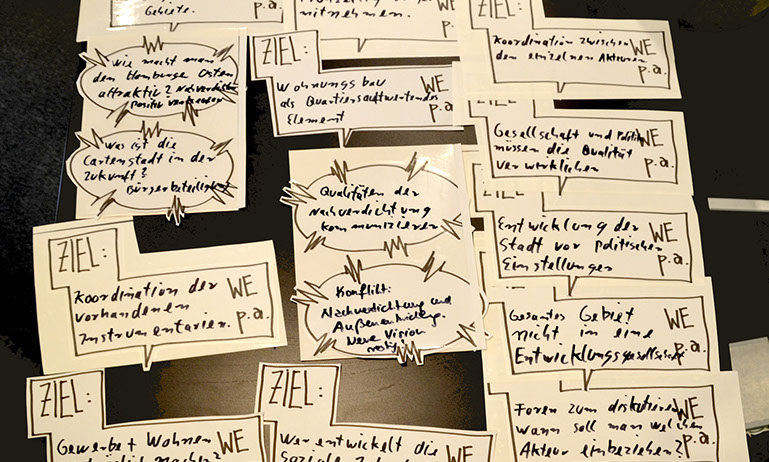 Gebiete.
p.a.
Wie macht man
den Hamburger Osten
attraktiv? Nachverdichtung
positiv verkaufen
Was ist die
Gartenstadt in der
Zukunft?
Bürgerbeteiligung
ZIEL:
Koordination der
vorhandenen
Instrumentarien.
WE
p.a.
ZIEL:
Gewerbe + Wohnen
WE
mitnehmen.
p.a.
ZIEL:
Wohnungsbau
als Quartiersaufwertendes
Element
WE
p.a.
Qualitäten der
Nachverdichtung
kommunizieren
Konflikt:
Nachverdichtung und
Außenentwicklung.
Neue Vision
nötig!
ZIEL:
Wer entwickelt die
WE
ZIEL:
Koordination zwischen
den einzelnen Akteuren
WE
p.a.
Gesellschaft und Politik
müssen die Qualität
verwirklichen
WE
p.a.
Entwicklung der
Stadt vor politischen
Einstellungen
WE
p.a.
Gesamtes Gebiet
nicht in eine
Entwicklungsgesellschaft
WE
p.a.
Foren zum diskutieren
wann soll man welchen
Akteur einbeziehen?
WE
p.a.